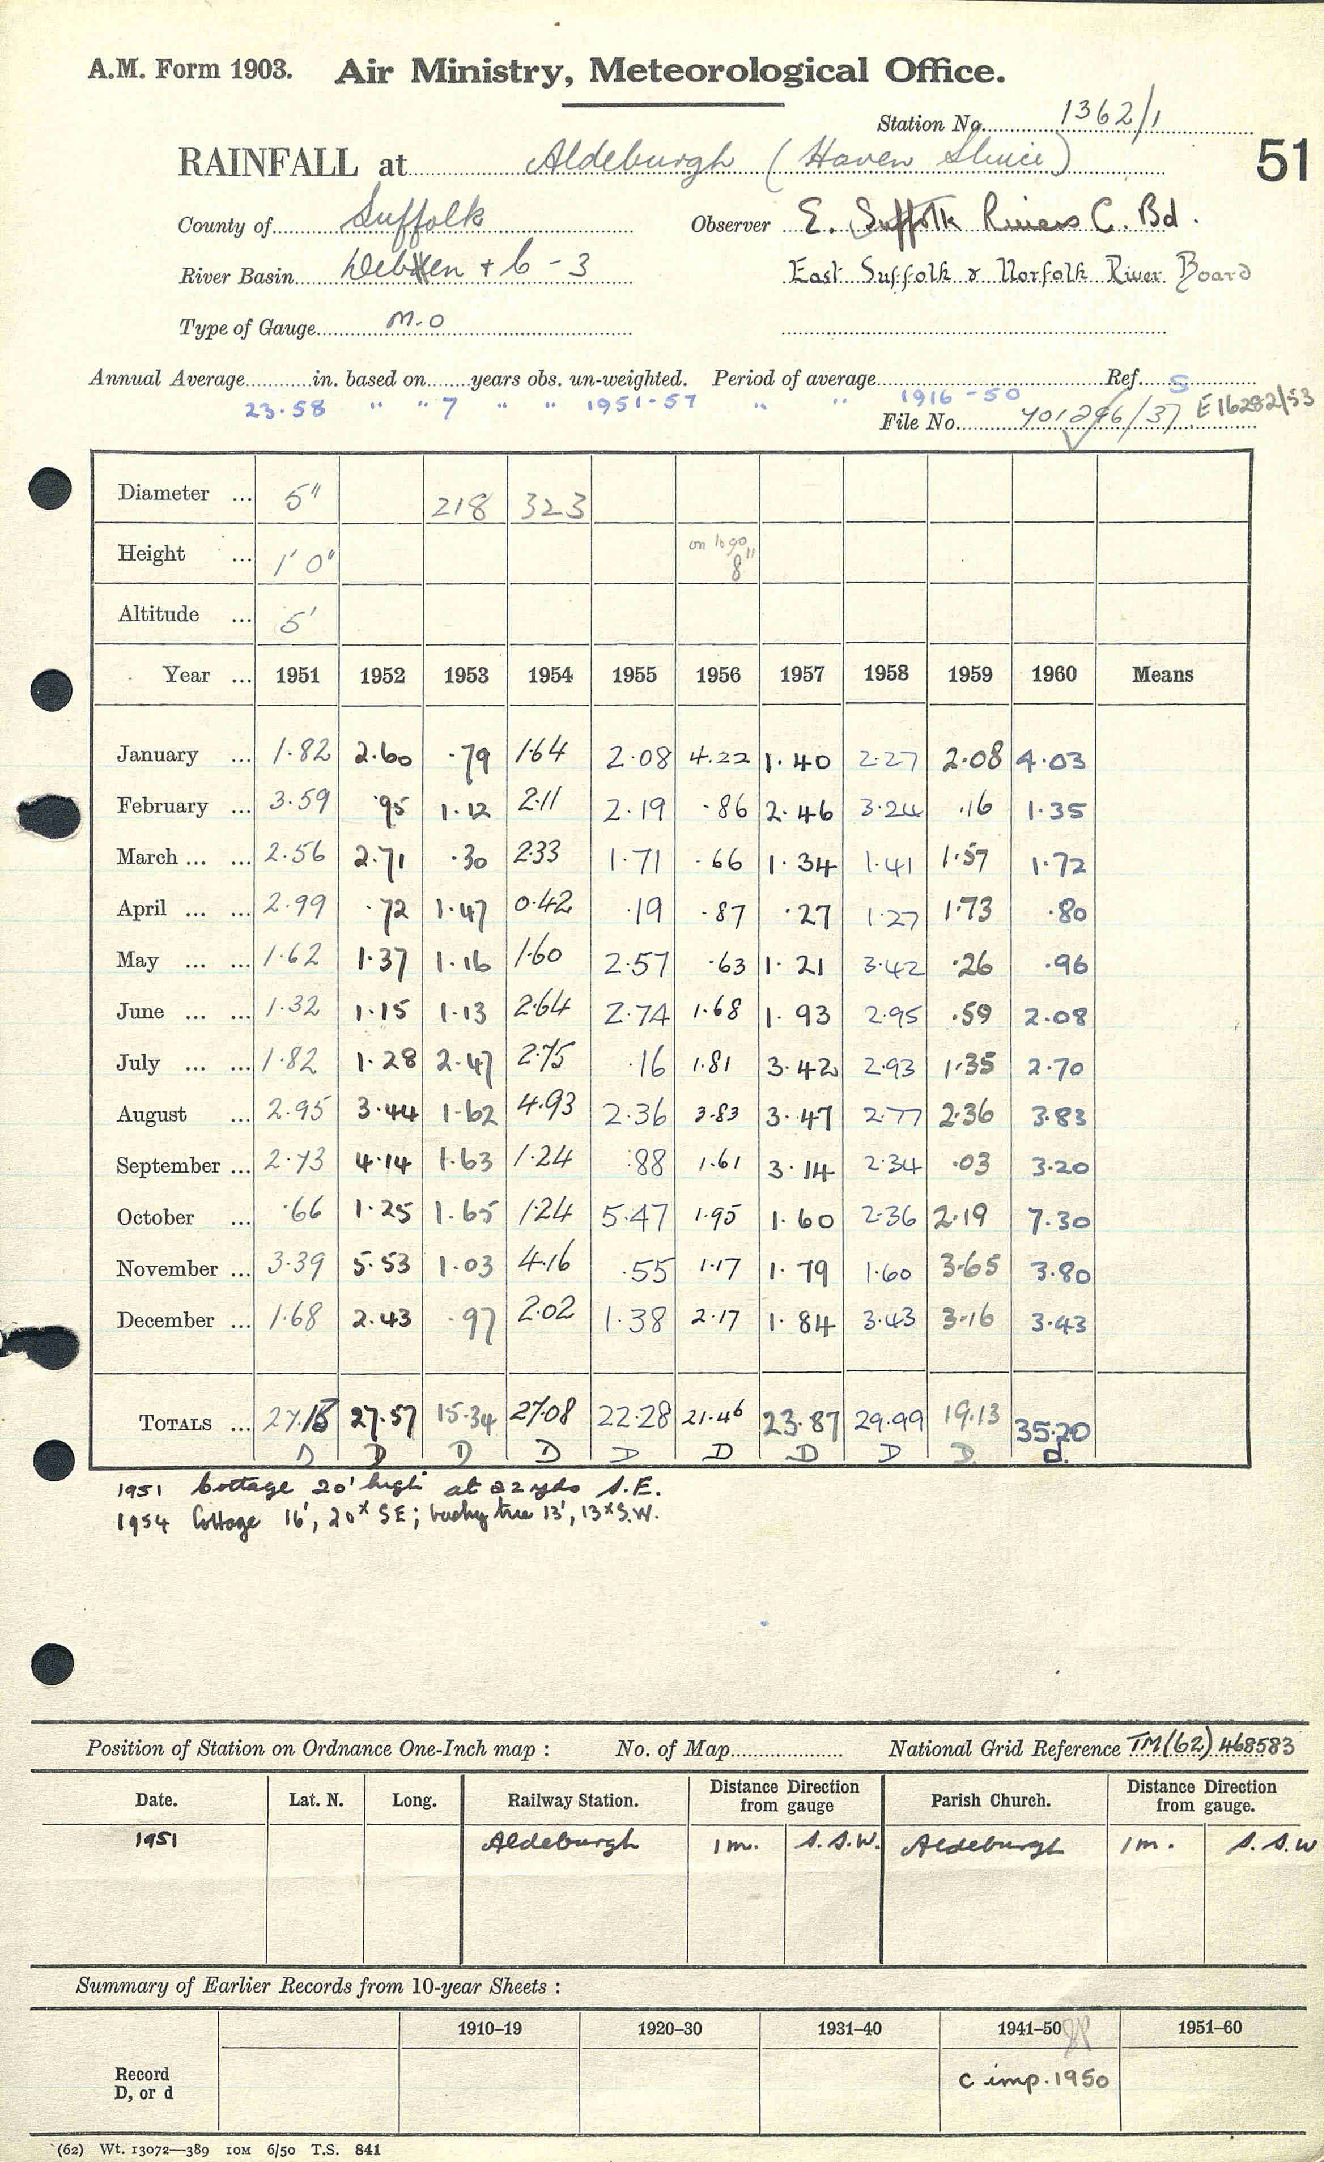 A.M. Form 1903. Air Ministry, Meteorological Office.
Station No. 1362/1
RAINFALL at Aldeburgh (Haven Sluice)
51
County of Suffolk Observer E. Suffolk Rivers C. Bd.
River Basin Deben + 6 - 3 East Suffolk & Norfolk River Board
Type of Gauge M.O
Annual Average in. based on years obs. un-weighted. Period of average Ref. S
23.58 " " 7 " " 1951-57 " " 1916-50
File No. 701296/37 E16282/53
Diameter ... 5" 218 323
Height ... 1' 0" on logo 8"
Altitude ... 5'
Year ... 1951 1952 1953 1954 1955 1956 1957 1958 1959 1960 Means
January ... 1.82 2.60 .79 1.64 2.08 4.22 1.40 2.27 2.08 4.03
February ... 3.59 .95 1.12 2.11 2.19 .86 2.46 3.24 .16 1.35
March ... ... 2.56 2.71 .30 2.33 1.71 .66 1.34 1.41 1.57 1.72
April ... ... 2.99 .72 1.47 0.42 .19 .87 .27 1.27 1.73 .80
May ... ... 1.62 1.37 1.16 1.60 2.57 .63 1.21 3.42 .26 .96
June ... ... 1.32 1.15 1.13 2.64 2.74 1.68 1.93 2.95 .59 2.08
July ... ... 1.82 1.28 2.47 2.75 .16 1.81 3.42 2.93 1.35 2.70
August ... 2.95 3.44 1.62 4.93 2.36 3.83 3.47 2.77 2.36 3.83
September ... 2.73 4.14 1.63 1.24 .88 1.61 3.14 2.34 .03 3.20
October ... .66 1.25 1.65 1.24 5.47 1.95 1.60 2.36 2.19 7.30
November ... 3.39 5.53 1.03 4.16 .55 1.17 1.79 1.60 3.65 3.80
December ... 1.68 2.43 .97 2.02 1.38 2.17 1.84 3.43 3.16 3.43
TOTALS ... 27.13 27.57 15.34 27.08 22.28 21.46 23.87 29.99 19.13 35.20
D D D D D D D D D d.
1951 Cottage 20' high at 22 yds S.E.
1954 Cottage 16', 20x SE; bushy tree 13', 13x S.W.
Position of Station on Ordnance One-Inch map : No. of Map National Grid Reference TM(62) 468583
Date. Lat. N. Long. Railway Station. Distance Direction from gauge Parish Church. Distance Direction from gauge.
1951 Aldeburgh 1 m. S.S.W. Aldeburgh 1 m. S.S.W
Summary of Earlier Records from 10-year Sheets :
1910–19 1920–30 1931–40 1941–50 1951–60
Record D, or d c imp. 1950
(62) Wt. 13072—389 10M 6/50 T.S. 841